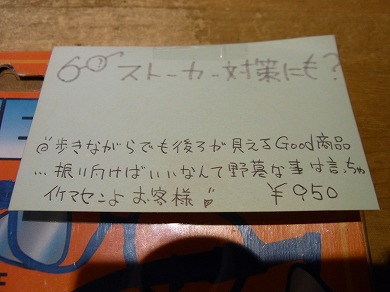 ストーカー対策にも?
歩きながらでも後ろが見えるGood商品
…振り向けばいいなんて野暮な事は言っちゃ
イケマセンよお客様
¥950